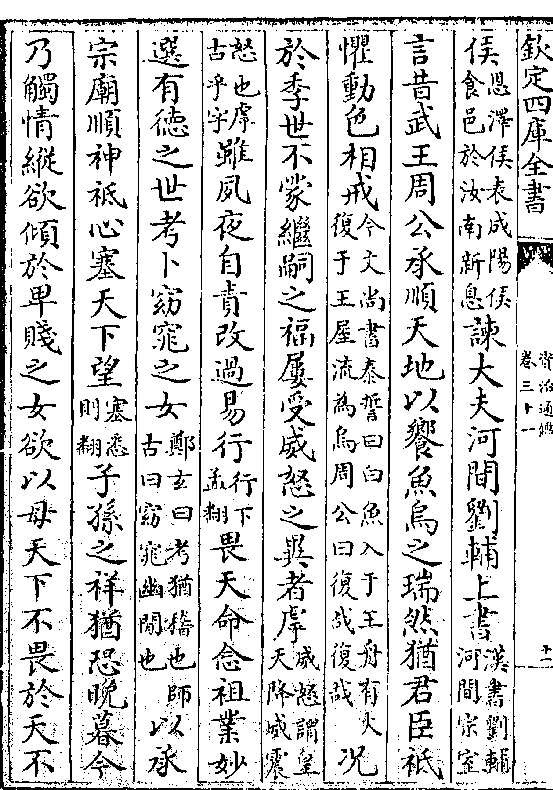 欽定四庫全書
資治通鑑
卷三十一
十一
侯恩澤侯表成陽侯食邑於汝南新息諫大夫河間劉輔上書漢書劉輔河間宗室
言昔武王周公承順天地以饗魚烏之瑞然猶君臣祗
懼動色相戒今文尚書泰誓曰白魚入于王舟有火復于王屋流為烏周公曰復哉復哉况
於季世不蒙繼嗣之福屢受威怒之異者虖威怒謂皇天降威震
怒也虖古乎字雖夙夜自責改過易行行下孟翻畏天命念祖業妙
選有德之世考卜窈窕之女鄭玄曰考猶稽也師古曰窈窕幽閒也以承
宗廟順神祇心塞天下望塞悉則翻子孫之祥猶恐晚暮今
乃觸情縱欲傾於卑賤之女欲以母天下不畏於天不